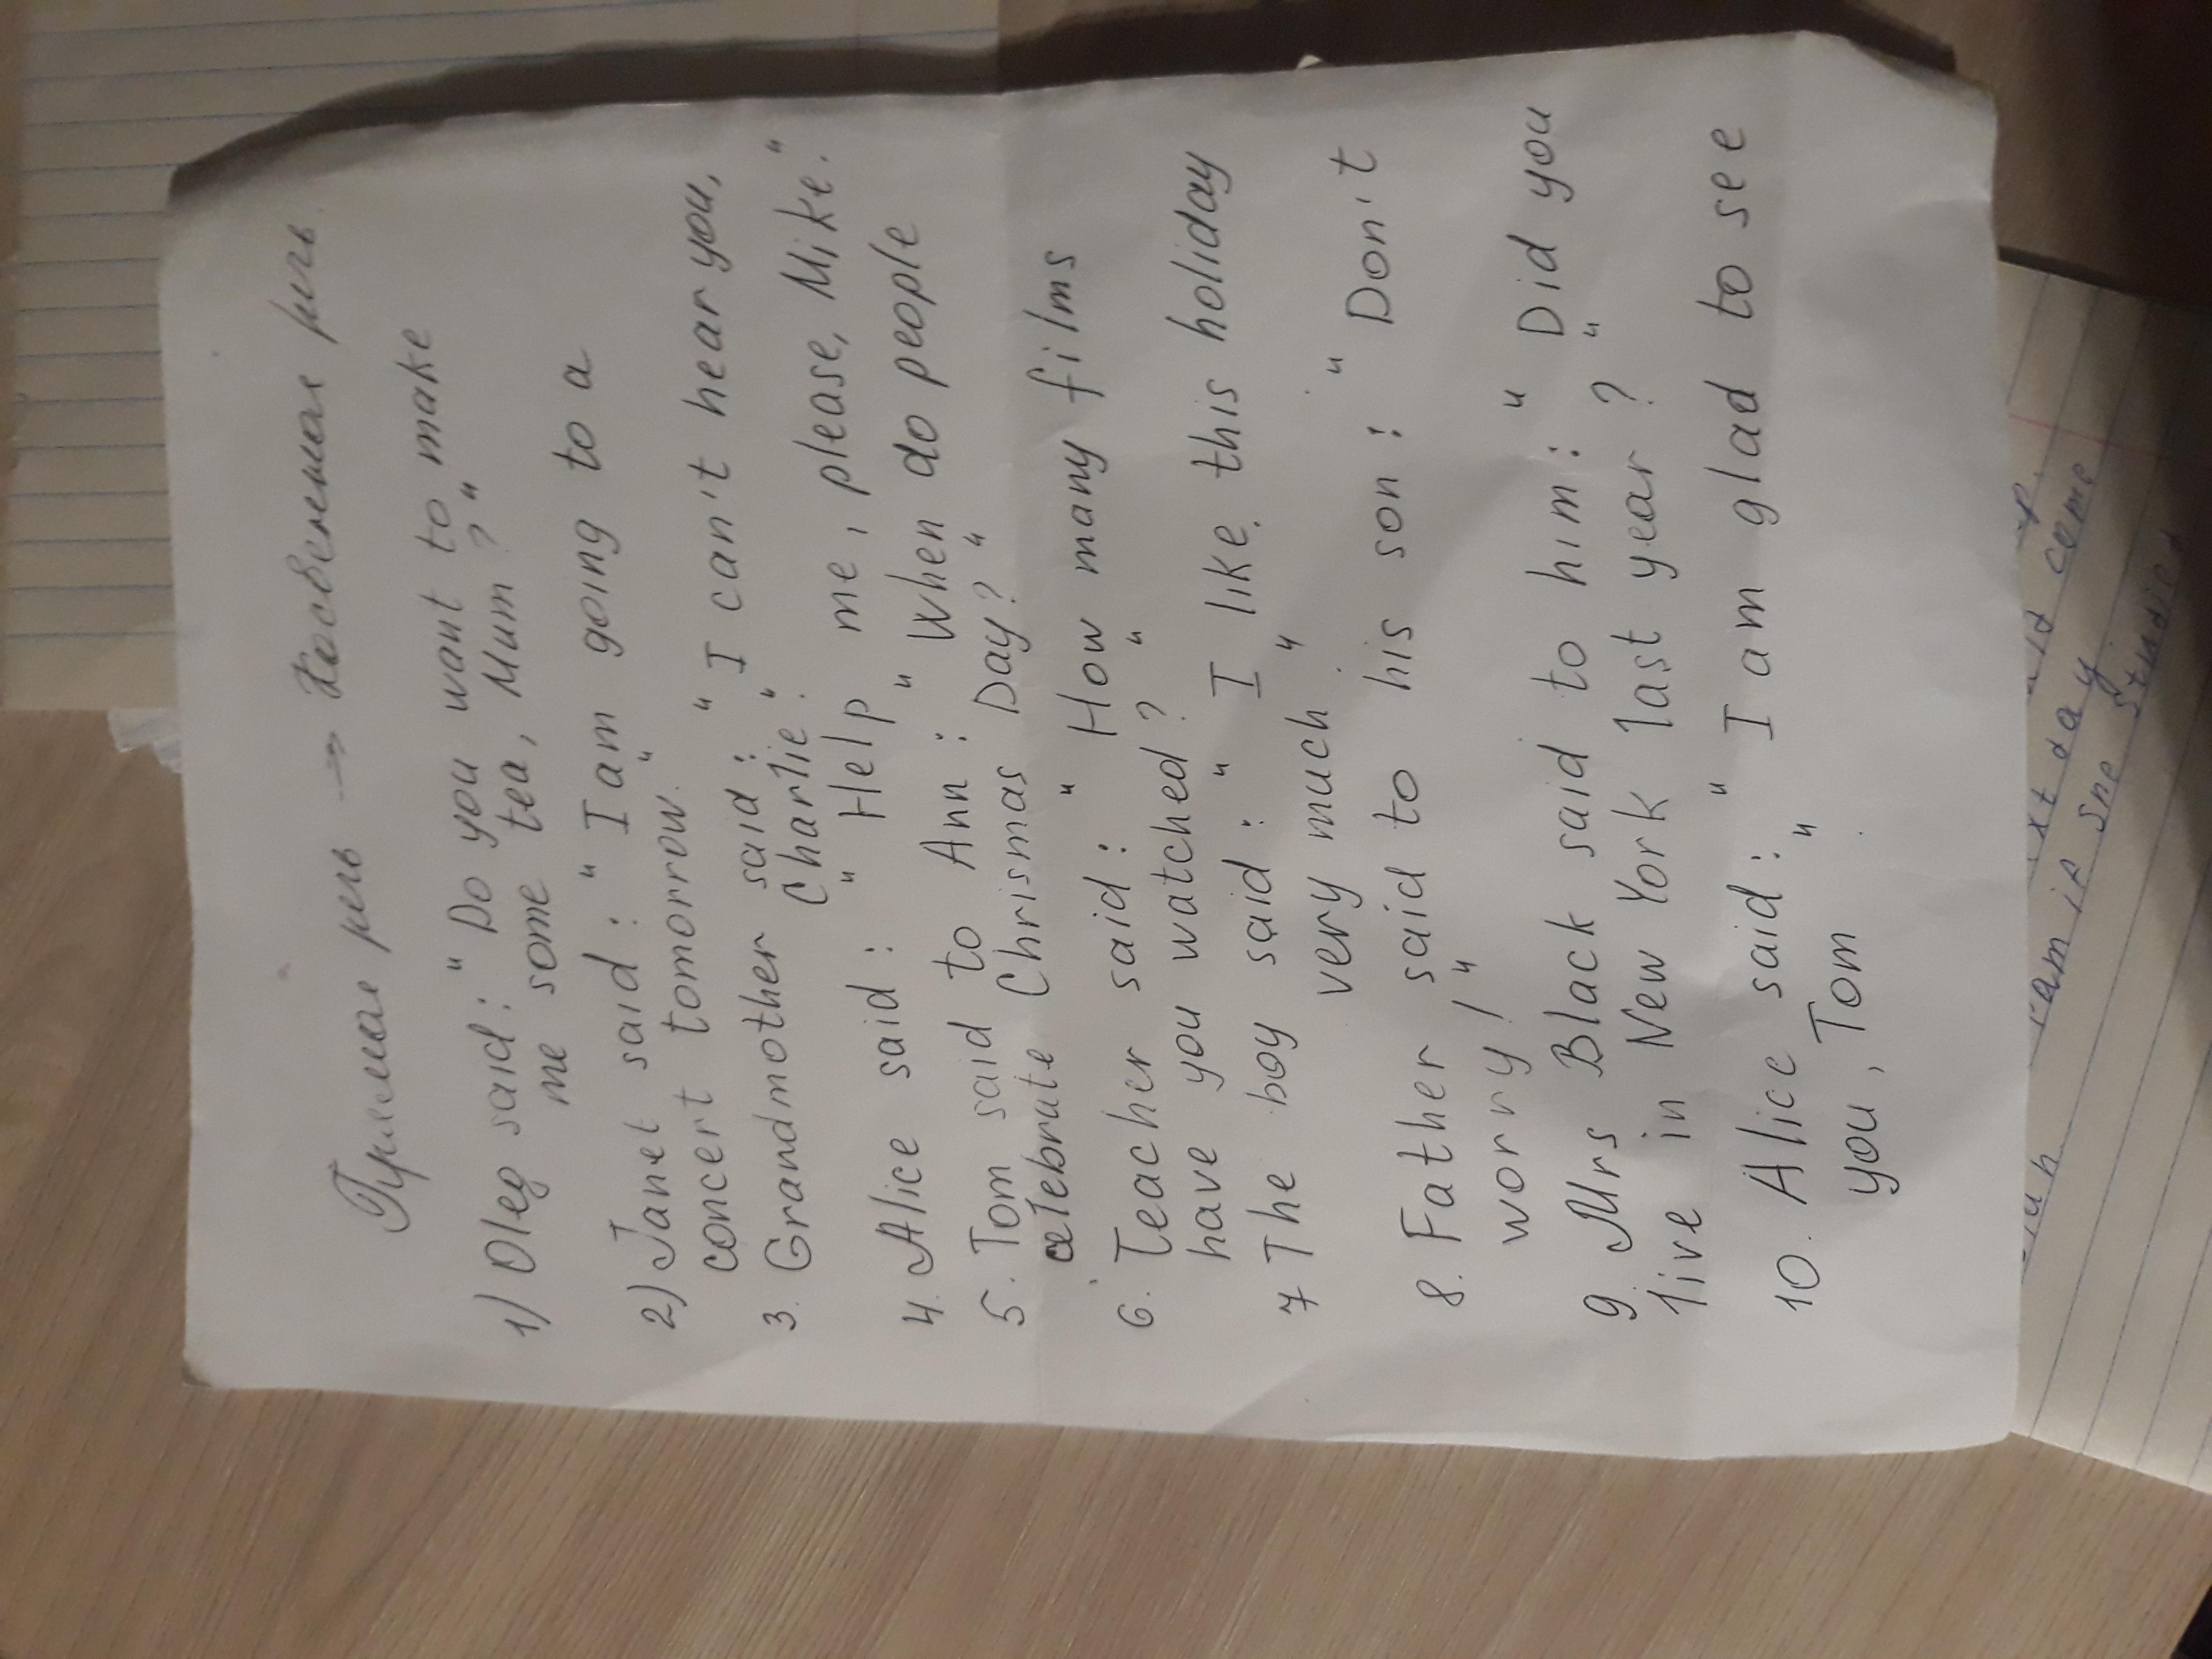 Прямая речь → Косвенная речь.
1) Oleg said: "Do you want to make
me some tea, Mum?"
2) Janet said: "I am going to a
concert tomorrow."
3. Grandmother said: "I can't hear you,
Charlie."
4. Alice said: "Help me, please, Mike."
5. Tom said to Ann: "When do people
celebrate Chrismas Day?"
6. Teacher said: "How many films
have you watched?"
7 The boy said: "I like this holiday
very much."
8. Father said to his son: "Don't
worry!"
9. Mrs Black said to him: "Did you
live in New York last year?"
10. Alice said: "I am glad to see
you, Tom"
day
she studied